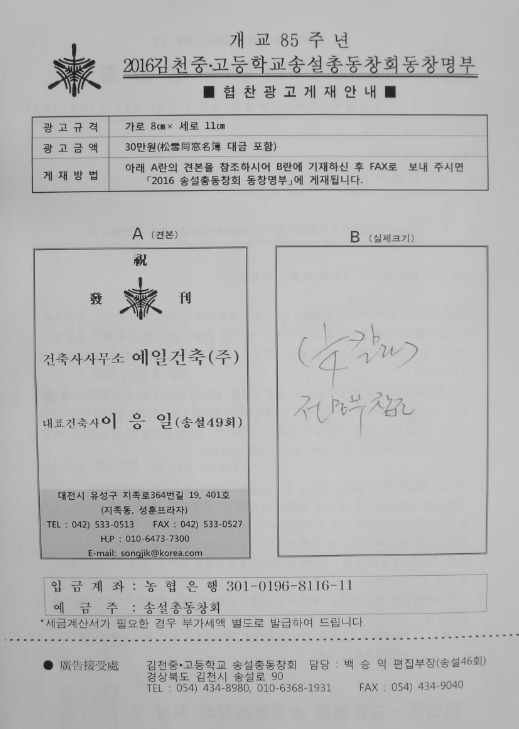 개교 85 주년
2016김천중·고등학교송설총동창회동창명부
■ 협찬광고게재안내 ■
광고규격 가로 8㎝× 세로 11㎝
광고금액 30만원(松雪同窓名簿 대금 포함)
게재방법 아래 A란의 견본을 참조하시어 B란에 기재하신 후 FAX로 보내 주시면
「2016 송설총동창회 동창명부」에 게재됩니다.
A (견본)
祝
發 刊
건축사사무소 예일건축(주)
대표건축사이 응 일(송설49회)
대전시 유성구 지족로364번길 19, 401호
(지족동, 성훈프라자)
TEL : 042) 533-0513 FAX : 042) 533-0527
H.P : 010-6473-7300
E-mail: songjik@korea.com
B (실제크기)
(1/4 칼라)
전명부 참조
입금계좌 : 농협은행 301-0196-8116-11
예 금 주 : 송설총동창회
*세금계산서가 필요한 경우 부가세액 별도로 발급하여 드립니다.
● 廣告接受處 김천중·고등학교 송설총동창회 담당 : 백 승 익 편집부장(송설46회)
경상북도 김천시 송설로 90
TEL : 054) 434-8980, 010-6368-1931 FAX : 054) 434-9040